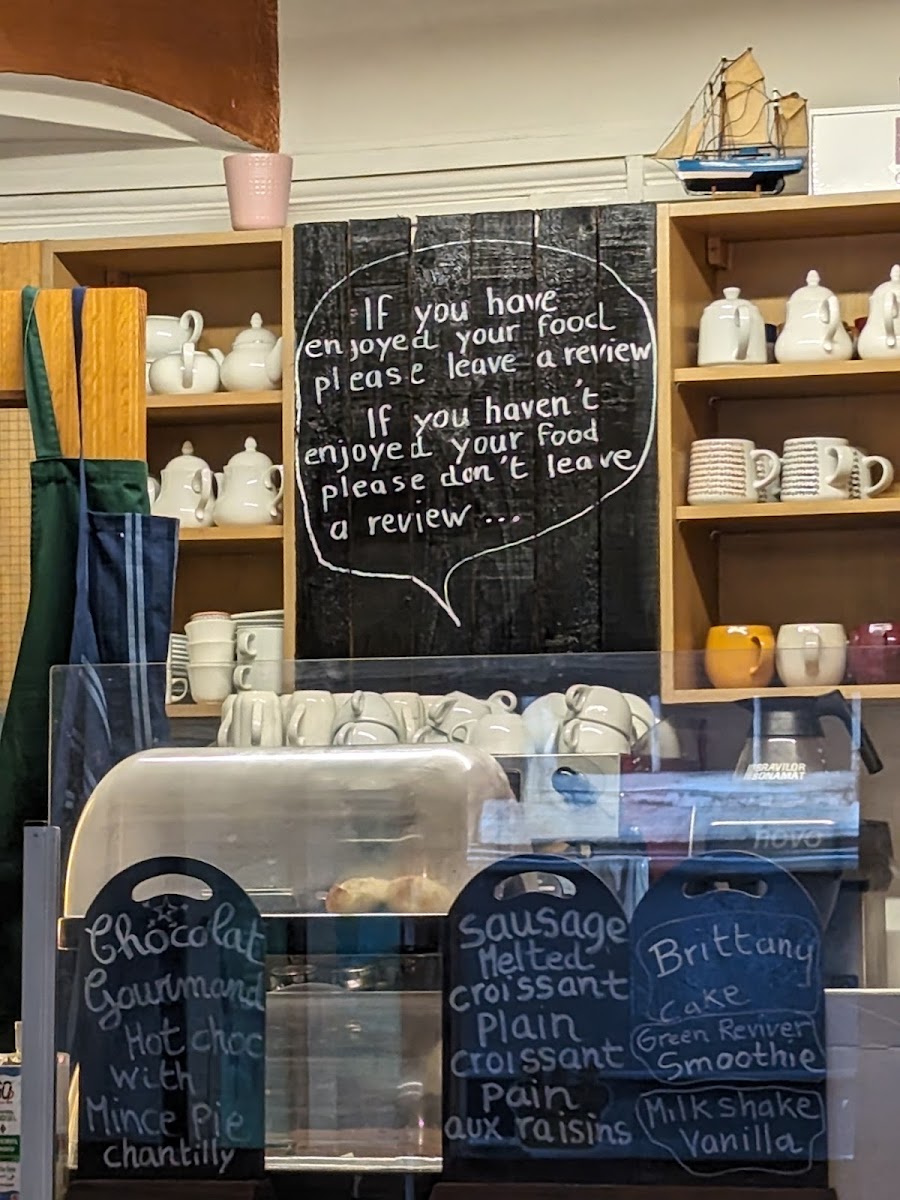 If you have
enjoyed your food
please leave a review
If you haven't
enjoyed your food
please don't leave
a review ...
BRAVILOR
BONAMAT
novo
Chocolat
Gourmand
Hot choc
with
Mince Pie
chantilly
Sausage
Melted
croissant
Plain
croissant
Pain
aux raisins
Brittany
Cake
Green Reviver
Smoothie
Milkshake
Vanilla